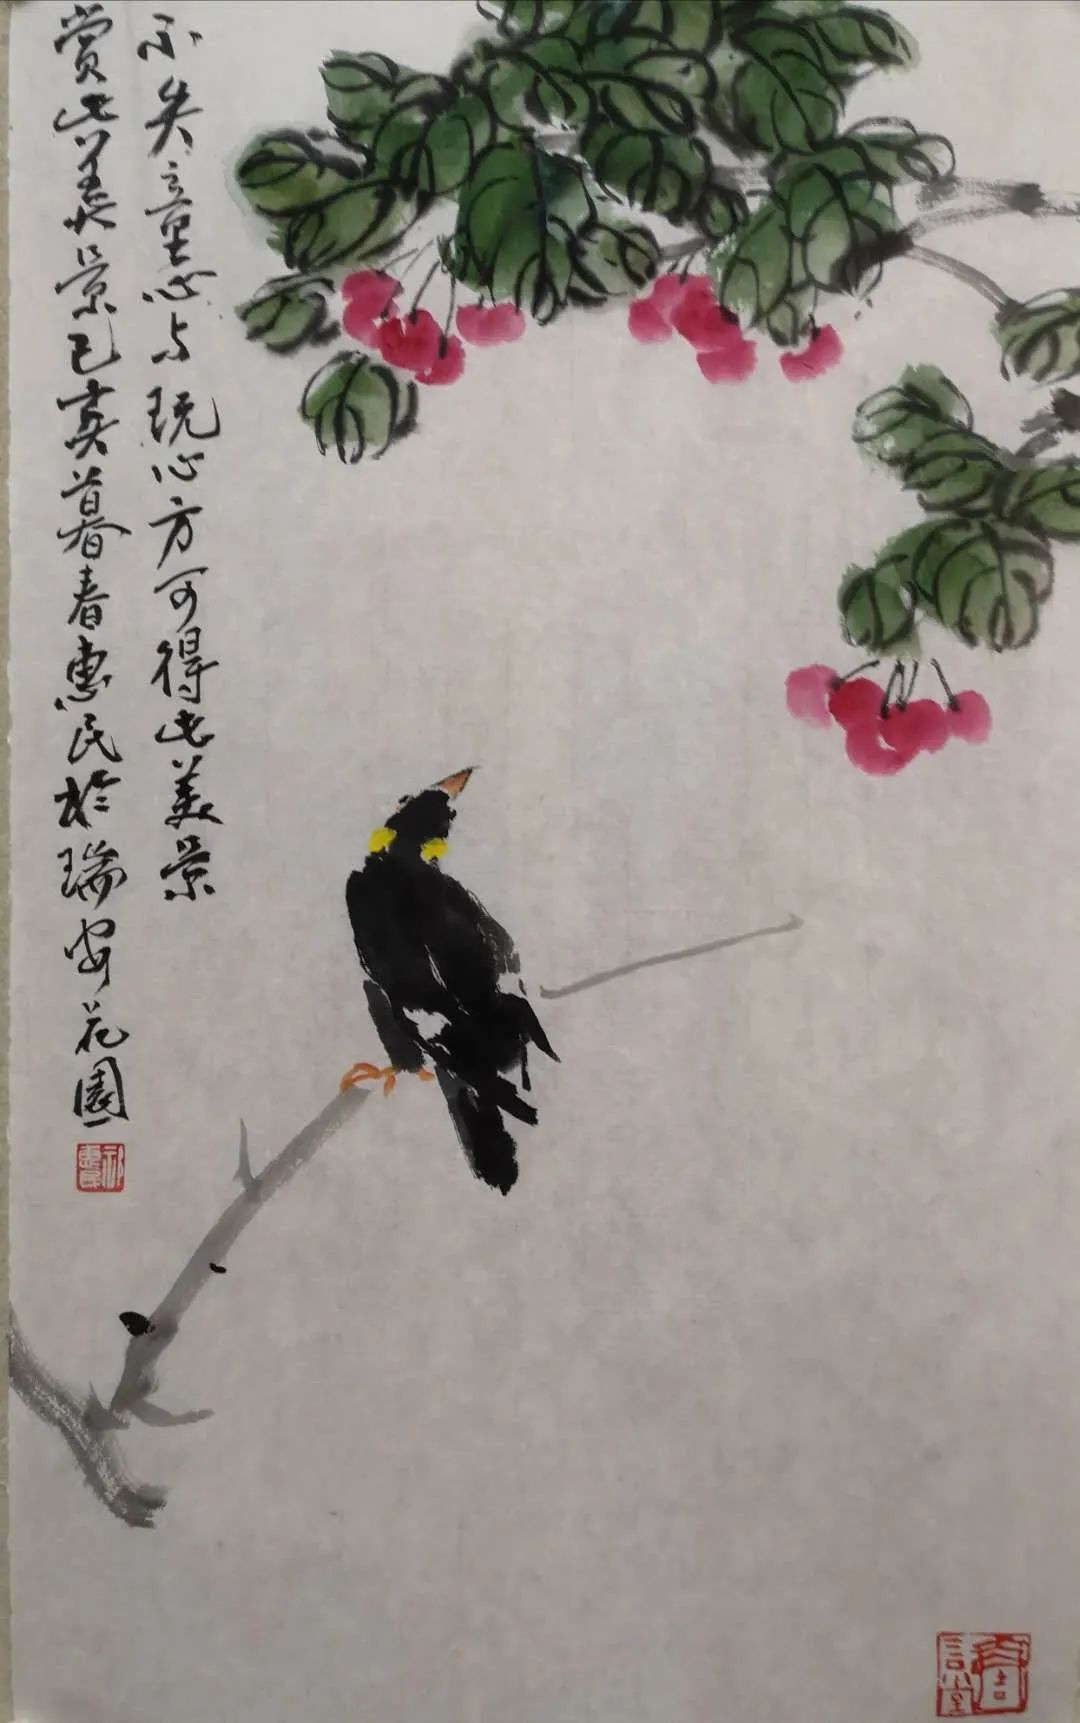 不失童心与玩心方可得此美景
赏此美景己亥暮春惠民於瑞安花園